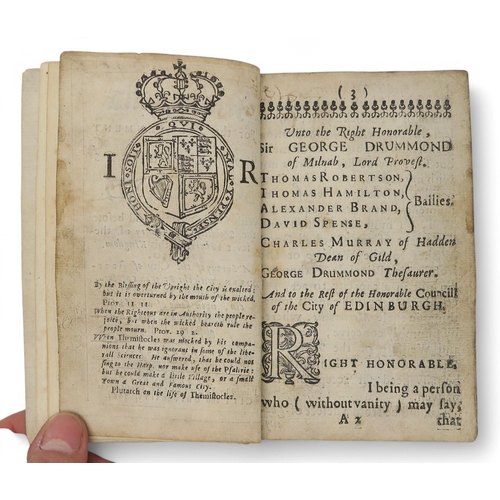 I R
HONI SOIT QUI MAL Y PENSE
By the Blessing of the Upright the City is exalted;
but it is overturned by the mouth of the wicked.
Prov. 11 11.
When the Righteous are in Authority the people re-
joice, but when the wicked beareth rule the
people mourn. Prov. 29 2.
VVhen Themistocles was mocked by his compa-
nions that he was ignorant in some of the libe-
rall sciences. He answered, that he could not
sing to the Harp, nor make use of the Psalterie:
but he could make a little Village, or a small
Town a Great and Famous City.
Plutarch on the life of Themistocles.
(3)
Unto the Right Honorable,
Sir GEORGE DRUMMOND
of Milnab, Lord Provest.
THOMAS ROBERTSON,
THOMAS HAMILTON,
ALEXANDER BRAND,
DAVID SPENSE,
Bailies.
CHARLES MURRAY of Hadden
Dean of Gild,
GEORGE DRUMMOND Thesaurer.
And to the Rest of the Honorable Councill
of the City of EDINBURGH.
RIGHT HONORABLE,
I being a person
who (without vanity) may say,
A 2 that